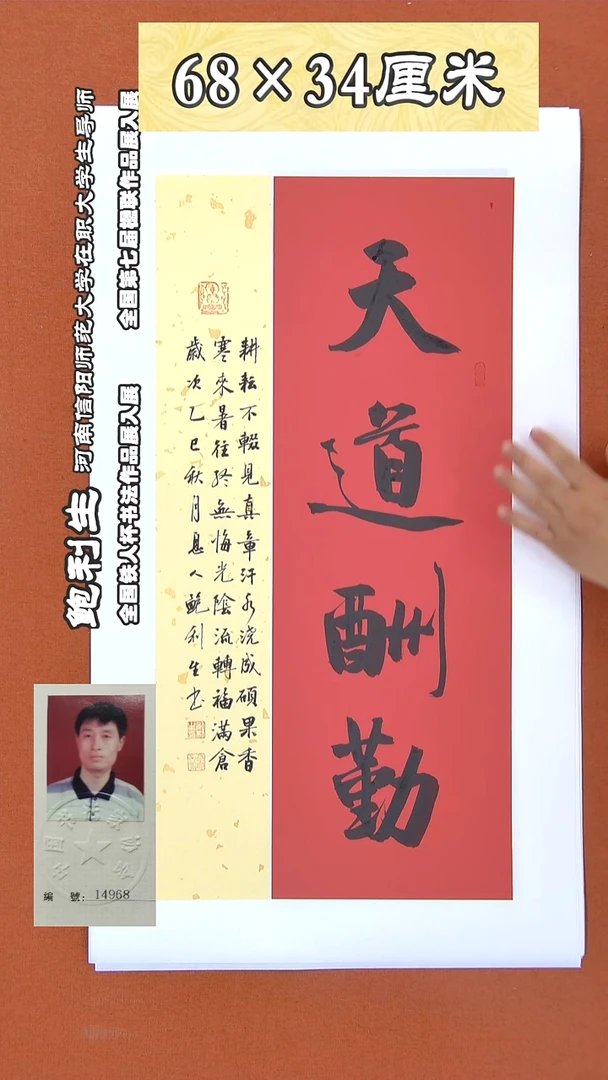 68×34厘米
鲍利生 河南信阳师范大学在职大学生导师
全国铁人杯书法作品展入展 全国第七届楹联作品展入展
天道酬勤
耕耘不輟見真章汗水浇成碩果香
寒來暑往終無悔光陰流轉福滿倉
歲次乙巳秋月息人鮑利生书
編 號: 14968